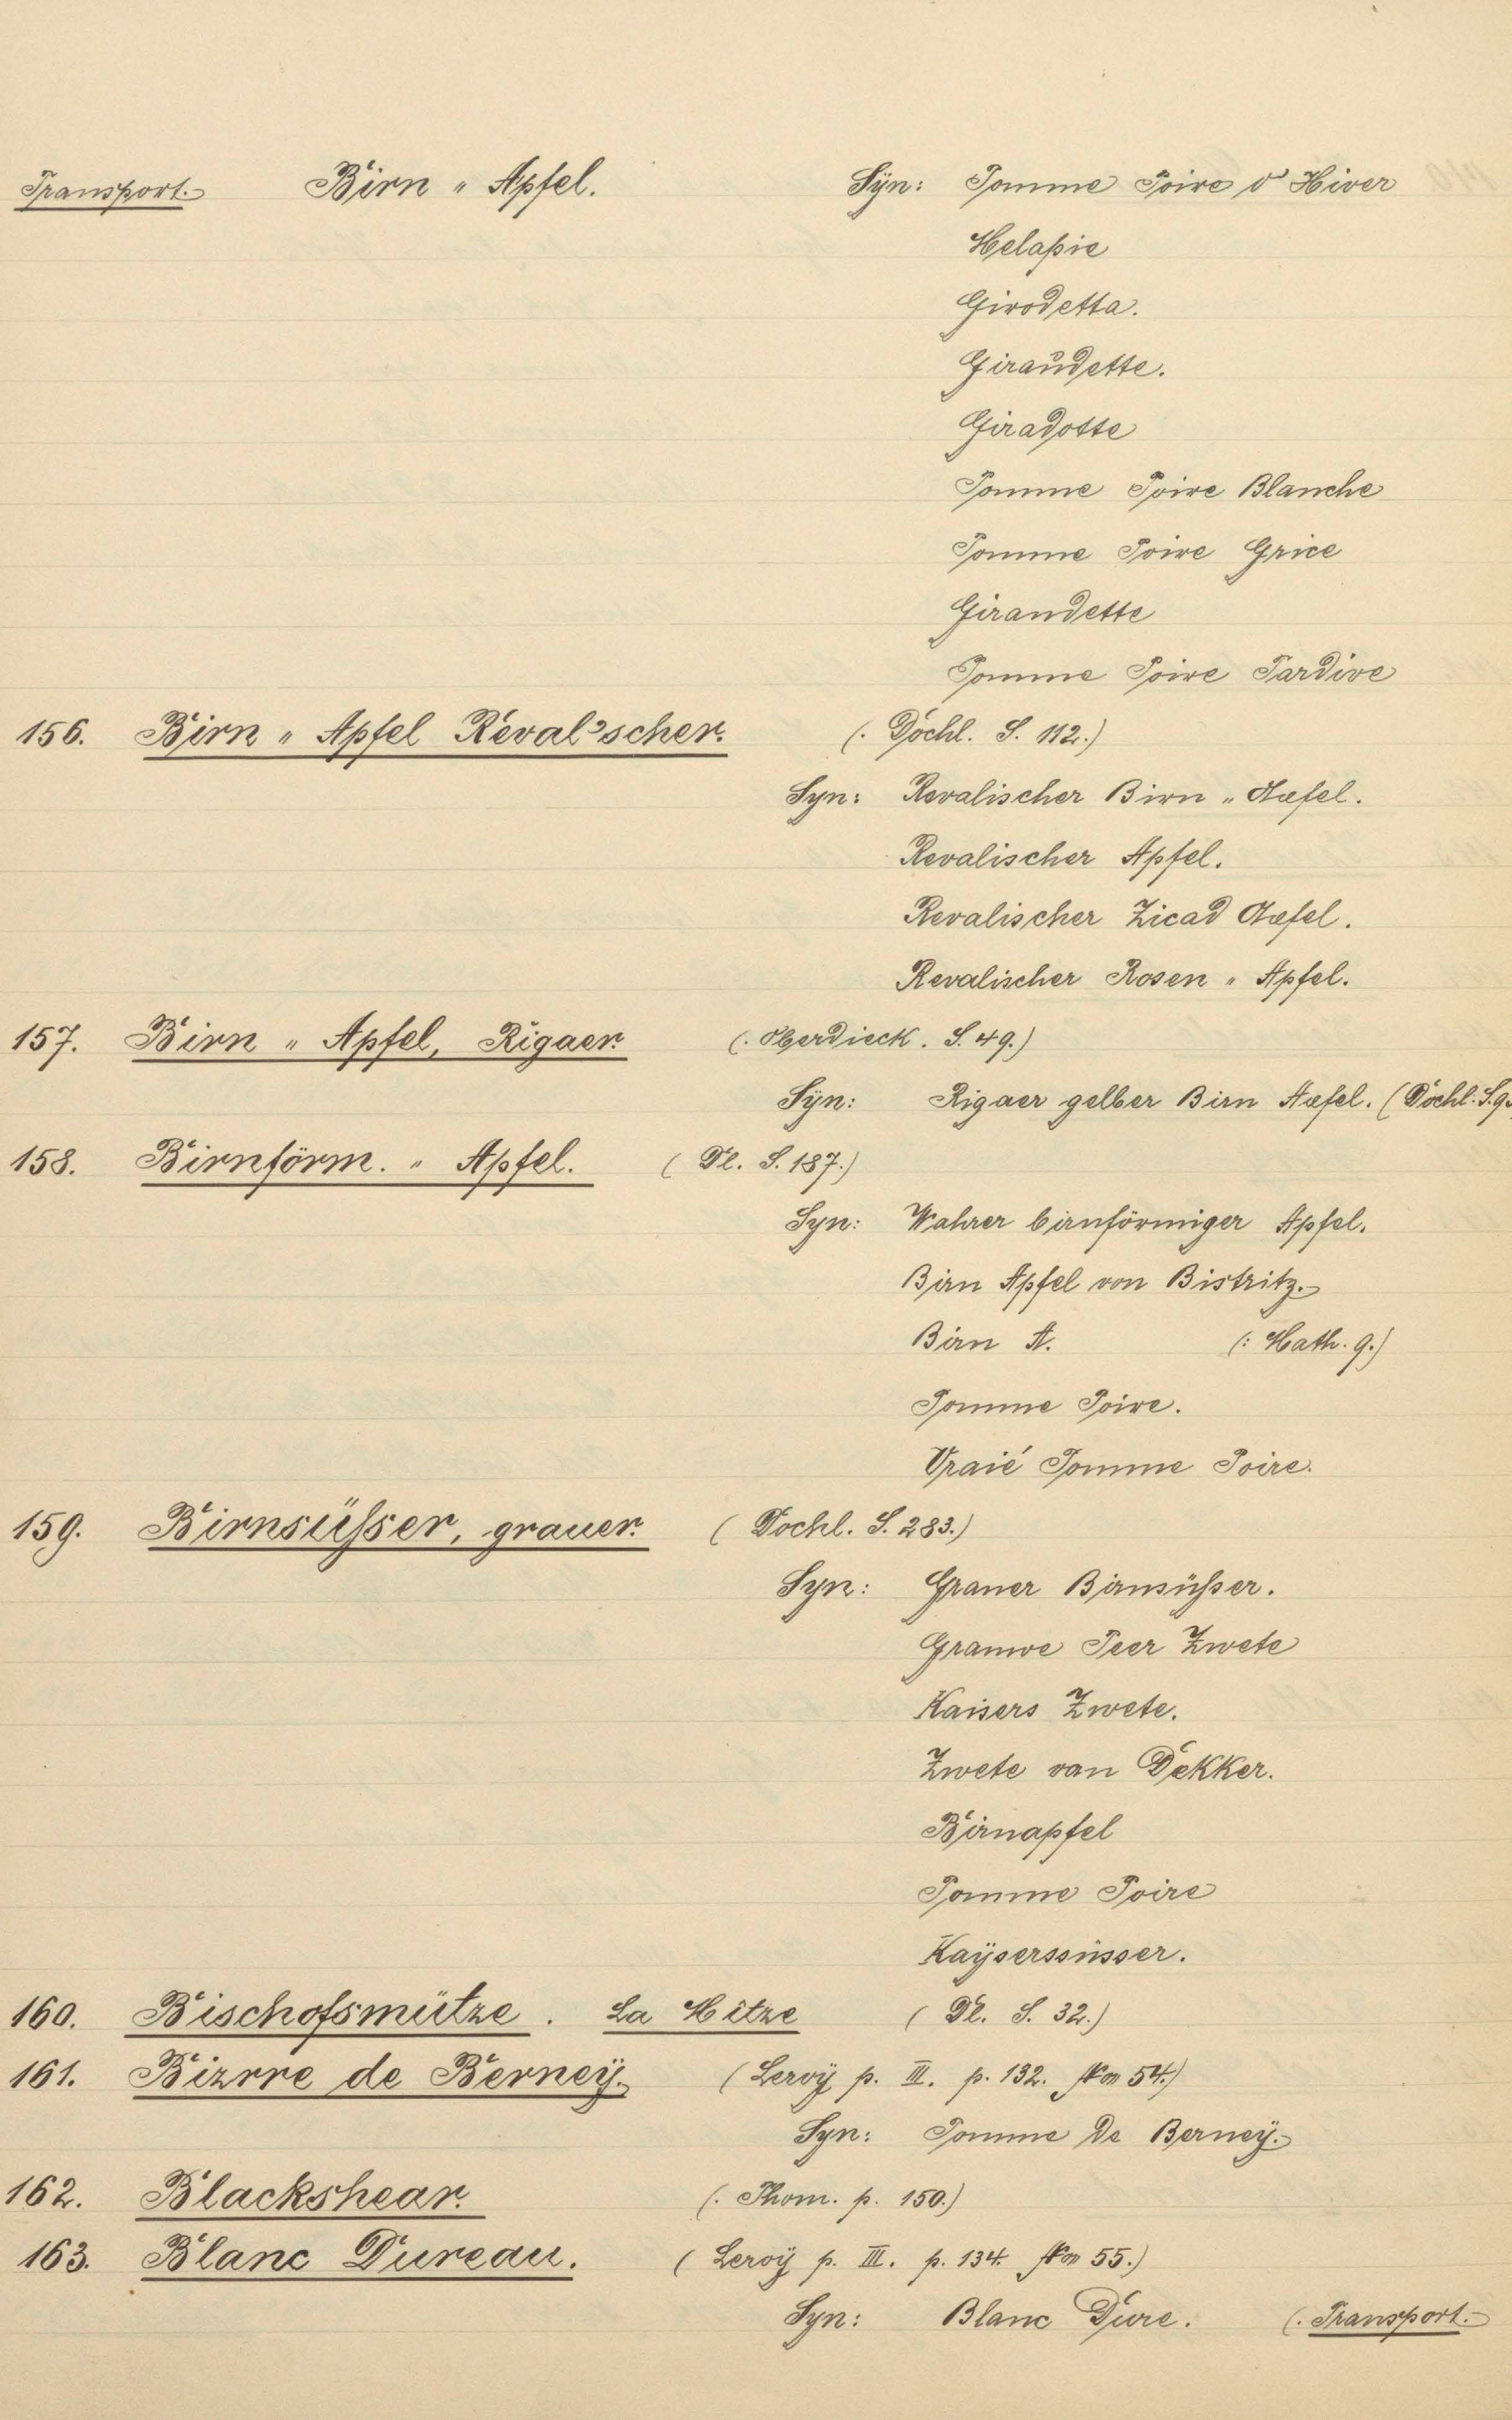 Transport. Birn „ Apfel. Syn: Pomme Poire d' Hiver
Helaßie
Girodetta.
Giraudette.
Giradotte
Pomme Poire Blanche
Pomme Poire Grice
Girandette
Pomme Poire Tardive
156. Birn „ Apfel Reval'scher. (. Dochl. S. 112.)
Syn: Revalischer Birn „ Aepfel.
Revalischer Apfel.
Revalischer Zicad Aepfel.
Revalischer Rosen „ Apfel.
157. Birn „ Apfel, Rigaer. (. Oberdieck. S. 49.)
Syn: Rigaer gelber Birn Aepfel. (Dochl. S. 9
158. Birnförm. „ Apfel. ( Dl. S. 187.)
Syn: Wahrer birnförmiger Apfel.
Birn Apfel von Bistritz.
Birn A. (: Math. 9.)
Pomme Poire.
Vraié Pomme Poire.
159. Birnsüsser, grauer. ( Dochl. S. 283.)
Syn: Grauer Birnsüsser.
Grauwe Peer Zwete
Kaisers Zwete.
Zwete van Dekker.
Birnapfel
Pomme Poire
Kaÿserssüsser.
160. Bischofsmütze . La Mitze ( Dl. S. 32.)
161. Bizrre de Berneÿ. (Leroÿ p. III. p. 132. Non 54.)
Syn: Pomme De Berneÿ.
162. Blackshear. (. Thom. p. 150.)
163. Blanc Dureau. ( Leroÿ p. III. p. 134. Non 55.)
Syn: Blanc Dure. (. Transport.